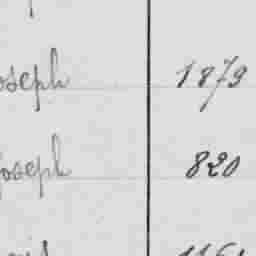 Joseph 1879
Joseph 820